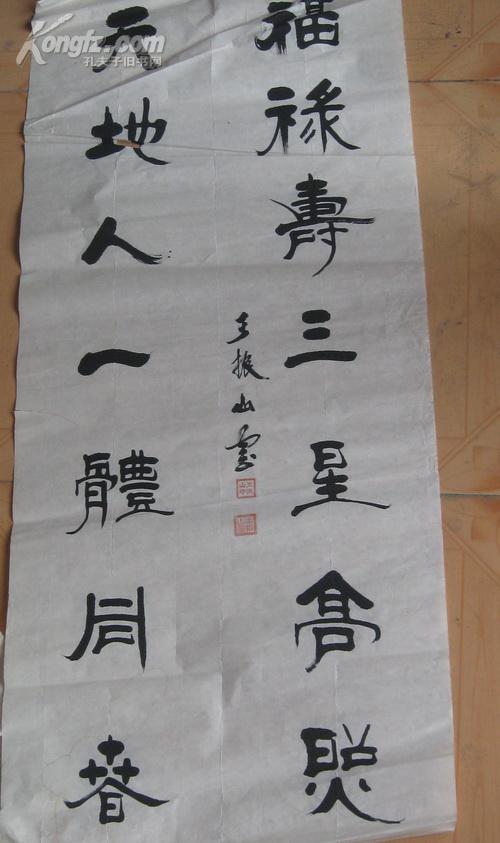 Kongfz.com
孔夫子旧书网
福祿壽三星高照
天地人一體同春
王振山